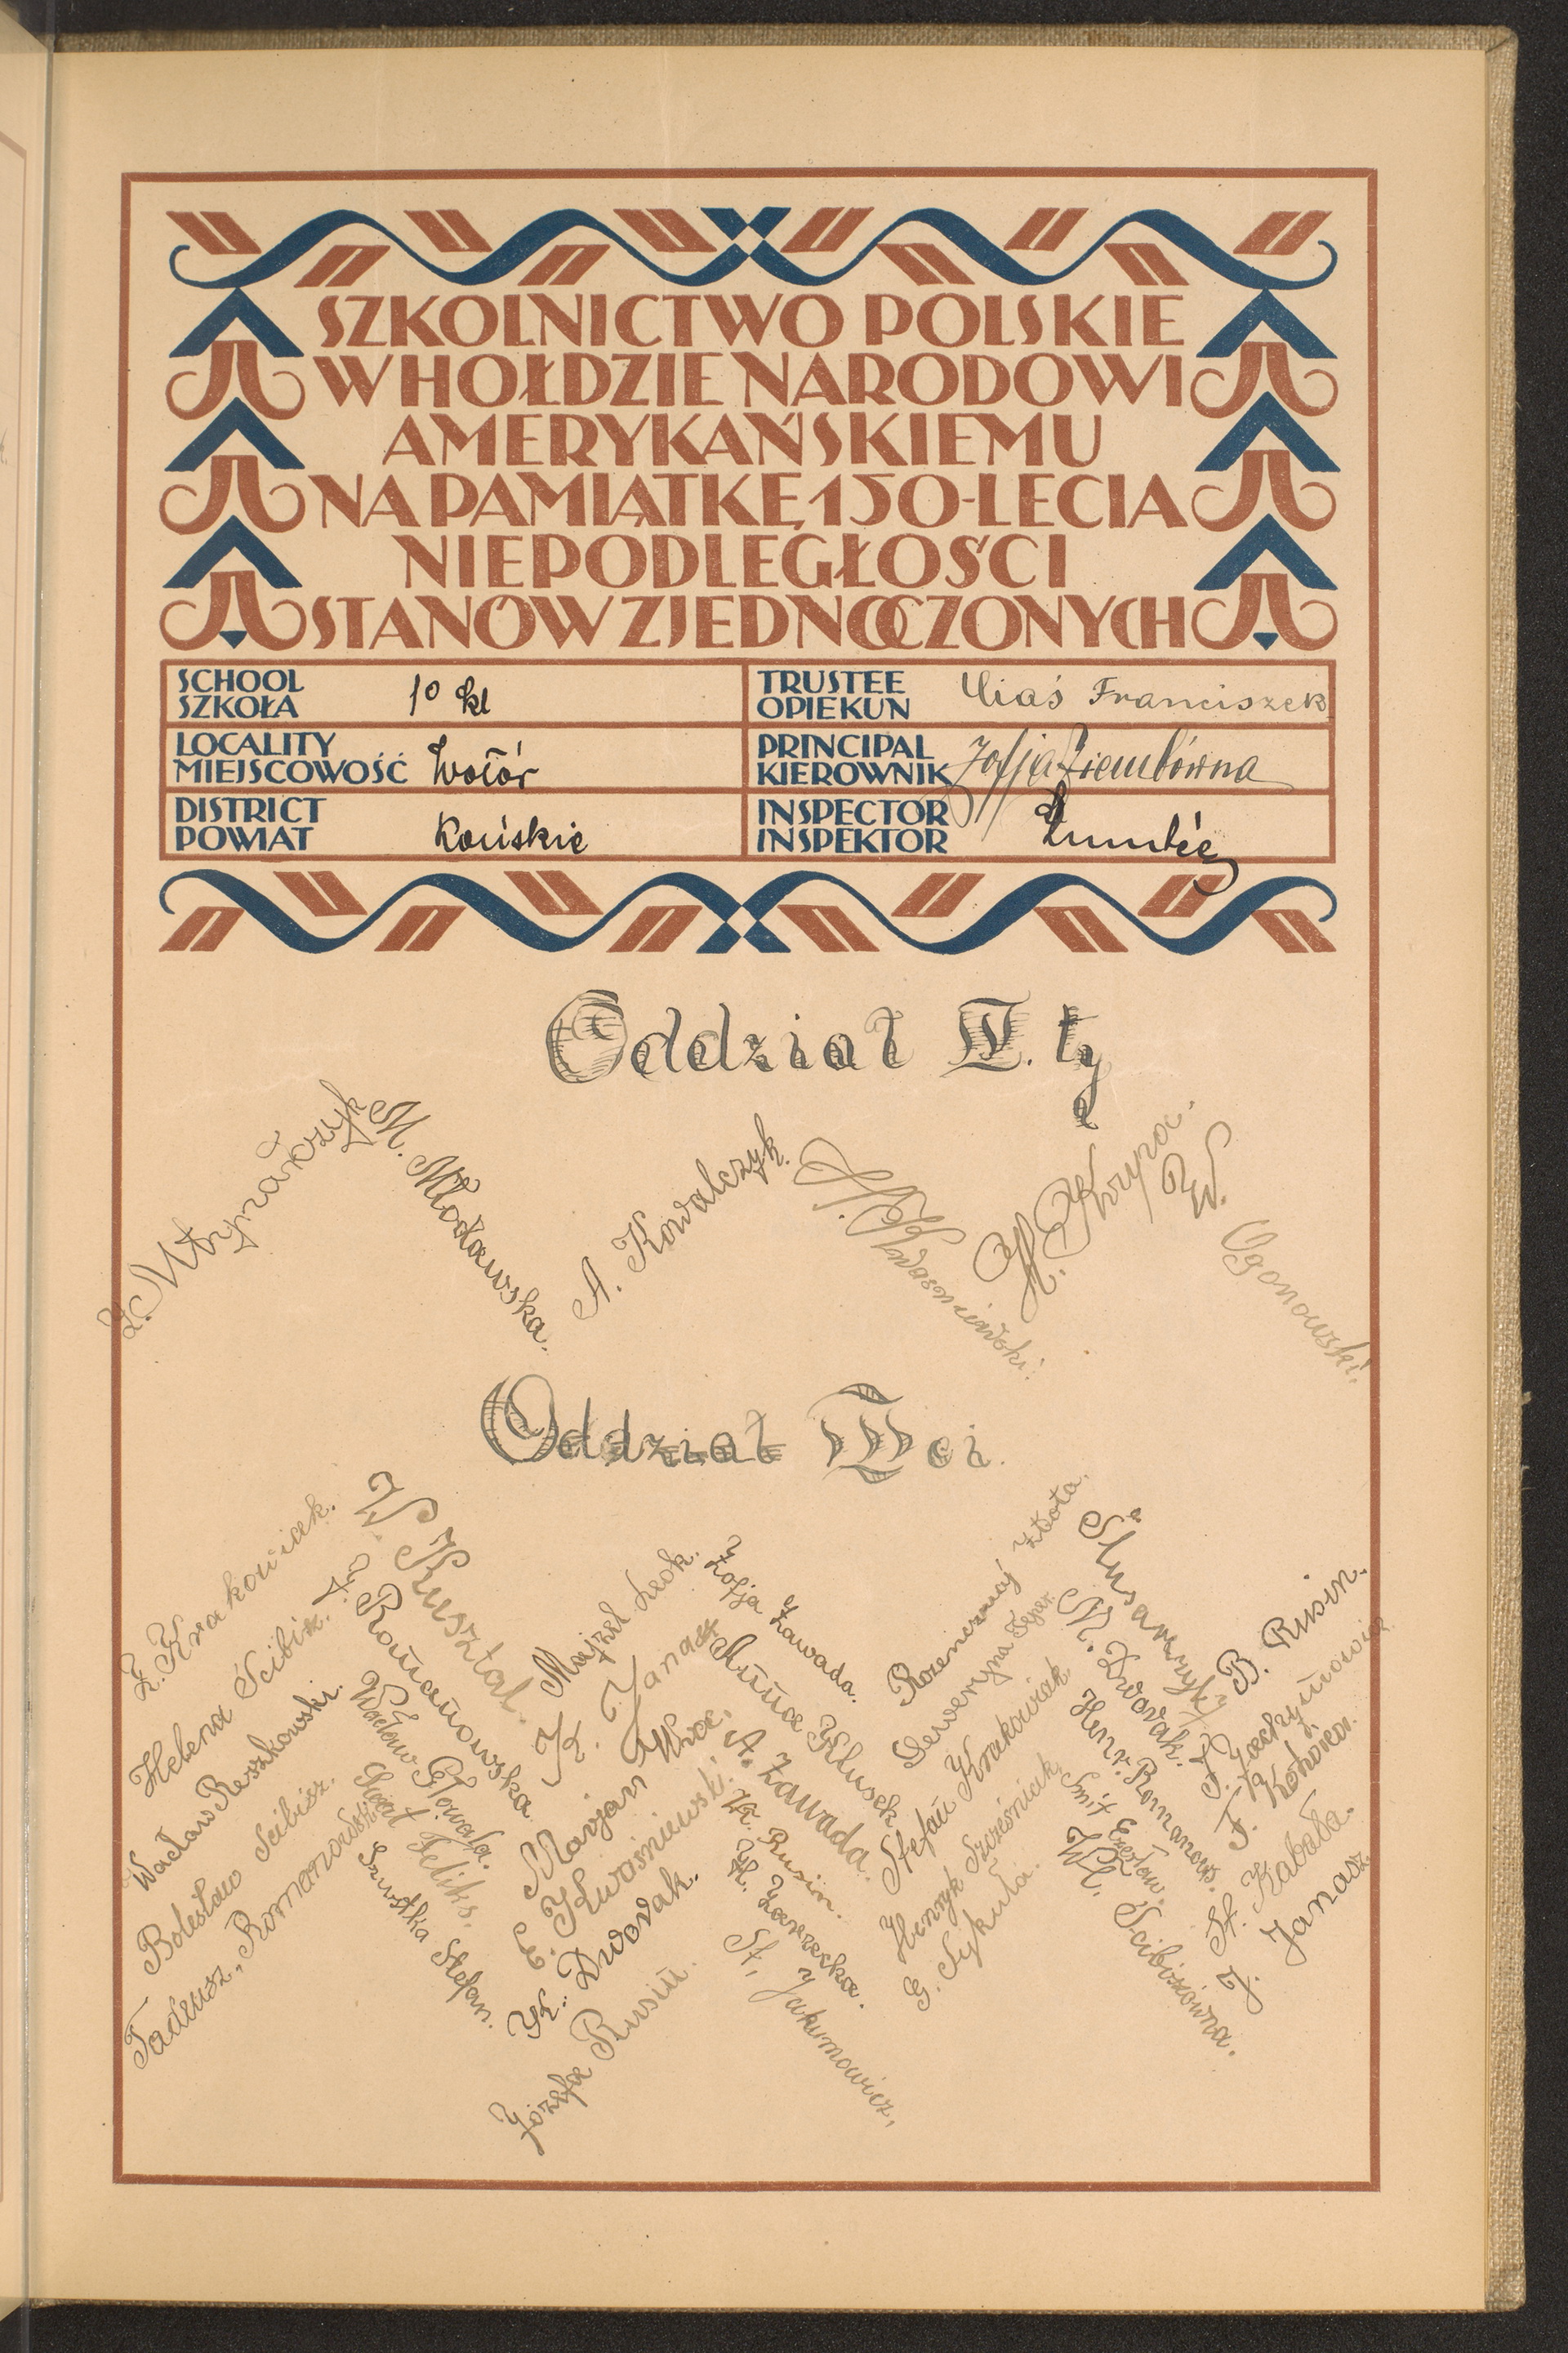 SZKOLNICTWO POLSKIE
W HOŁDZIE NARODOWI
AMERYKAŃSKIEMU
NA PAMIĄTKĘ 150-LECIA
NIEPODLEGŁOŚCI
STANÓW ZJEDNOCZONYCH
SCHOOL
SZKOŁA 10 kl
TRUSTEE
OPIEKUN Franciszek
LOCALITY
MIEJSCOWOŚĆ
PRINCIPAL
KIEROWNIK Zofja Ziembówna
DISTRICT
POWIAT Końskie
INSPECTOR
INSPEKTOR
Oddział V. ty
Z. Młynarczyk
M. Młodawska.
A. Kowalczyk.
H. Kwaśniewski.
H. Krypa
W. Ogonowski.
Oddział
Z. Krakowiak.
Helena Ścibisz.
Wacław Reszkowski.
Bolesław Scibisz.
Tadeusz, Romanowski
W. Kusztal.
Romanowska.
Wacław Głowala.
Feliks.
Szustka Stefan.
Majzel Leok.
K. Janasz
Marjan
Kwaśniewski.
K. Dwovak.
Józefa Rusin.
Zofja Zawada.
Anna Klusek
A. Zawada.
K. Rusin.
K. Zarzecka.
St. Jakimowicz,
Rozencwaj Złota.
Seweryna
Stefan Krakowiak
Henryk Szcześniak,
G. Sykuła.
Ślusarczyk
M. Dwovak.
Henr. Romanows.
Smit Czesław.
Wł. Scibiszówna.
B. Rusin.
F. Joachymowicz
F.
St. Kabała.
Z Janasz.